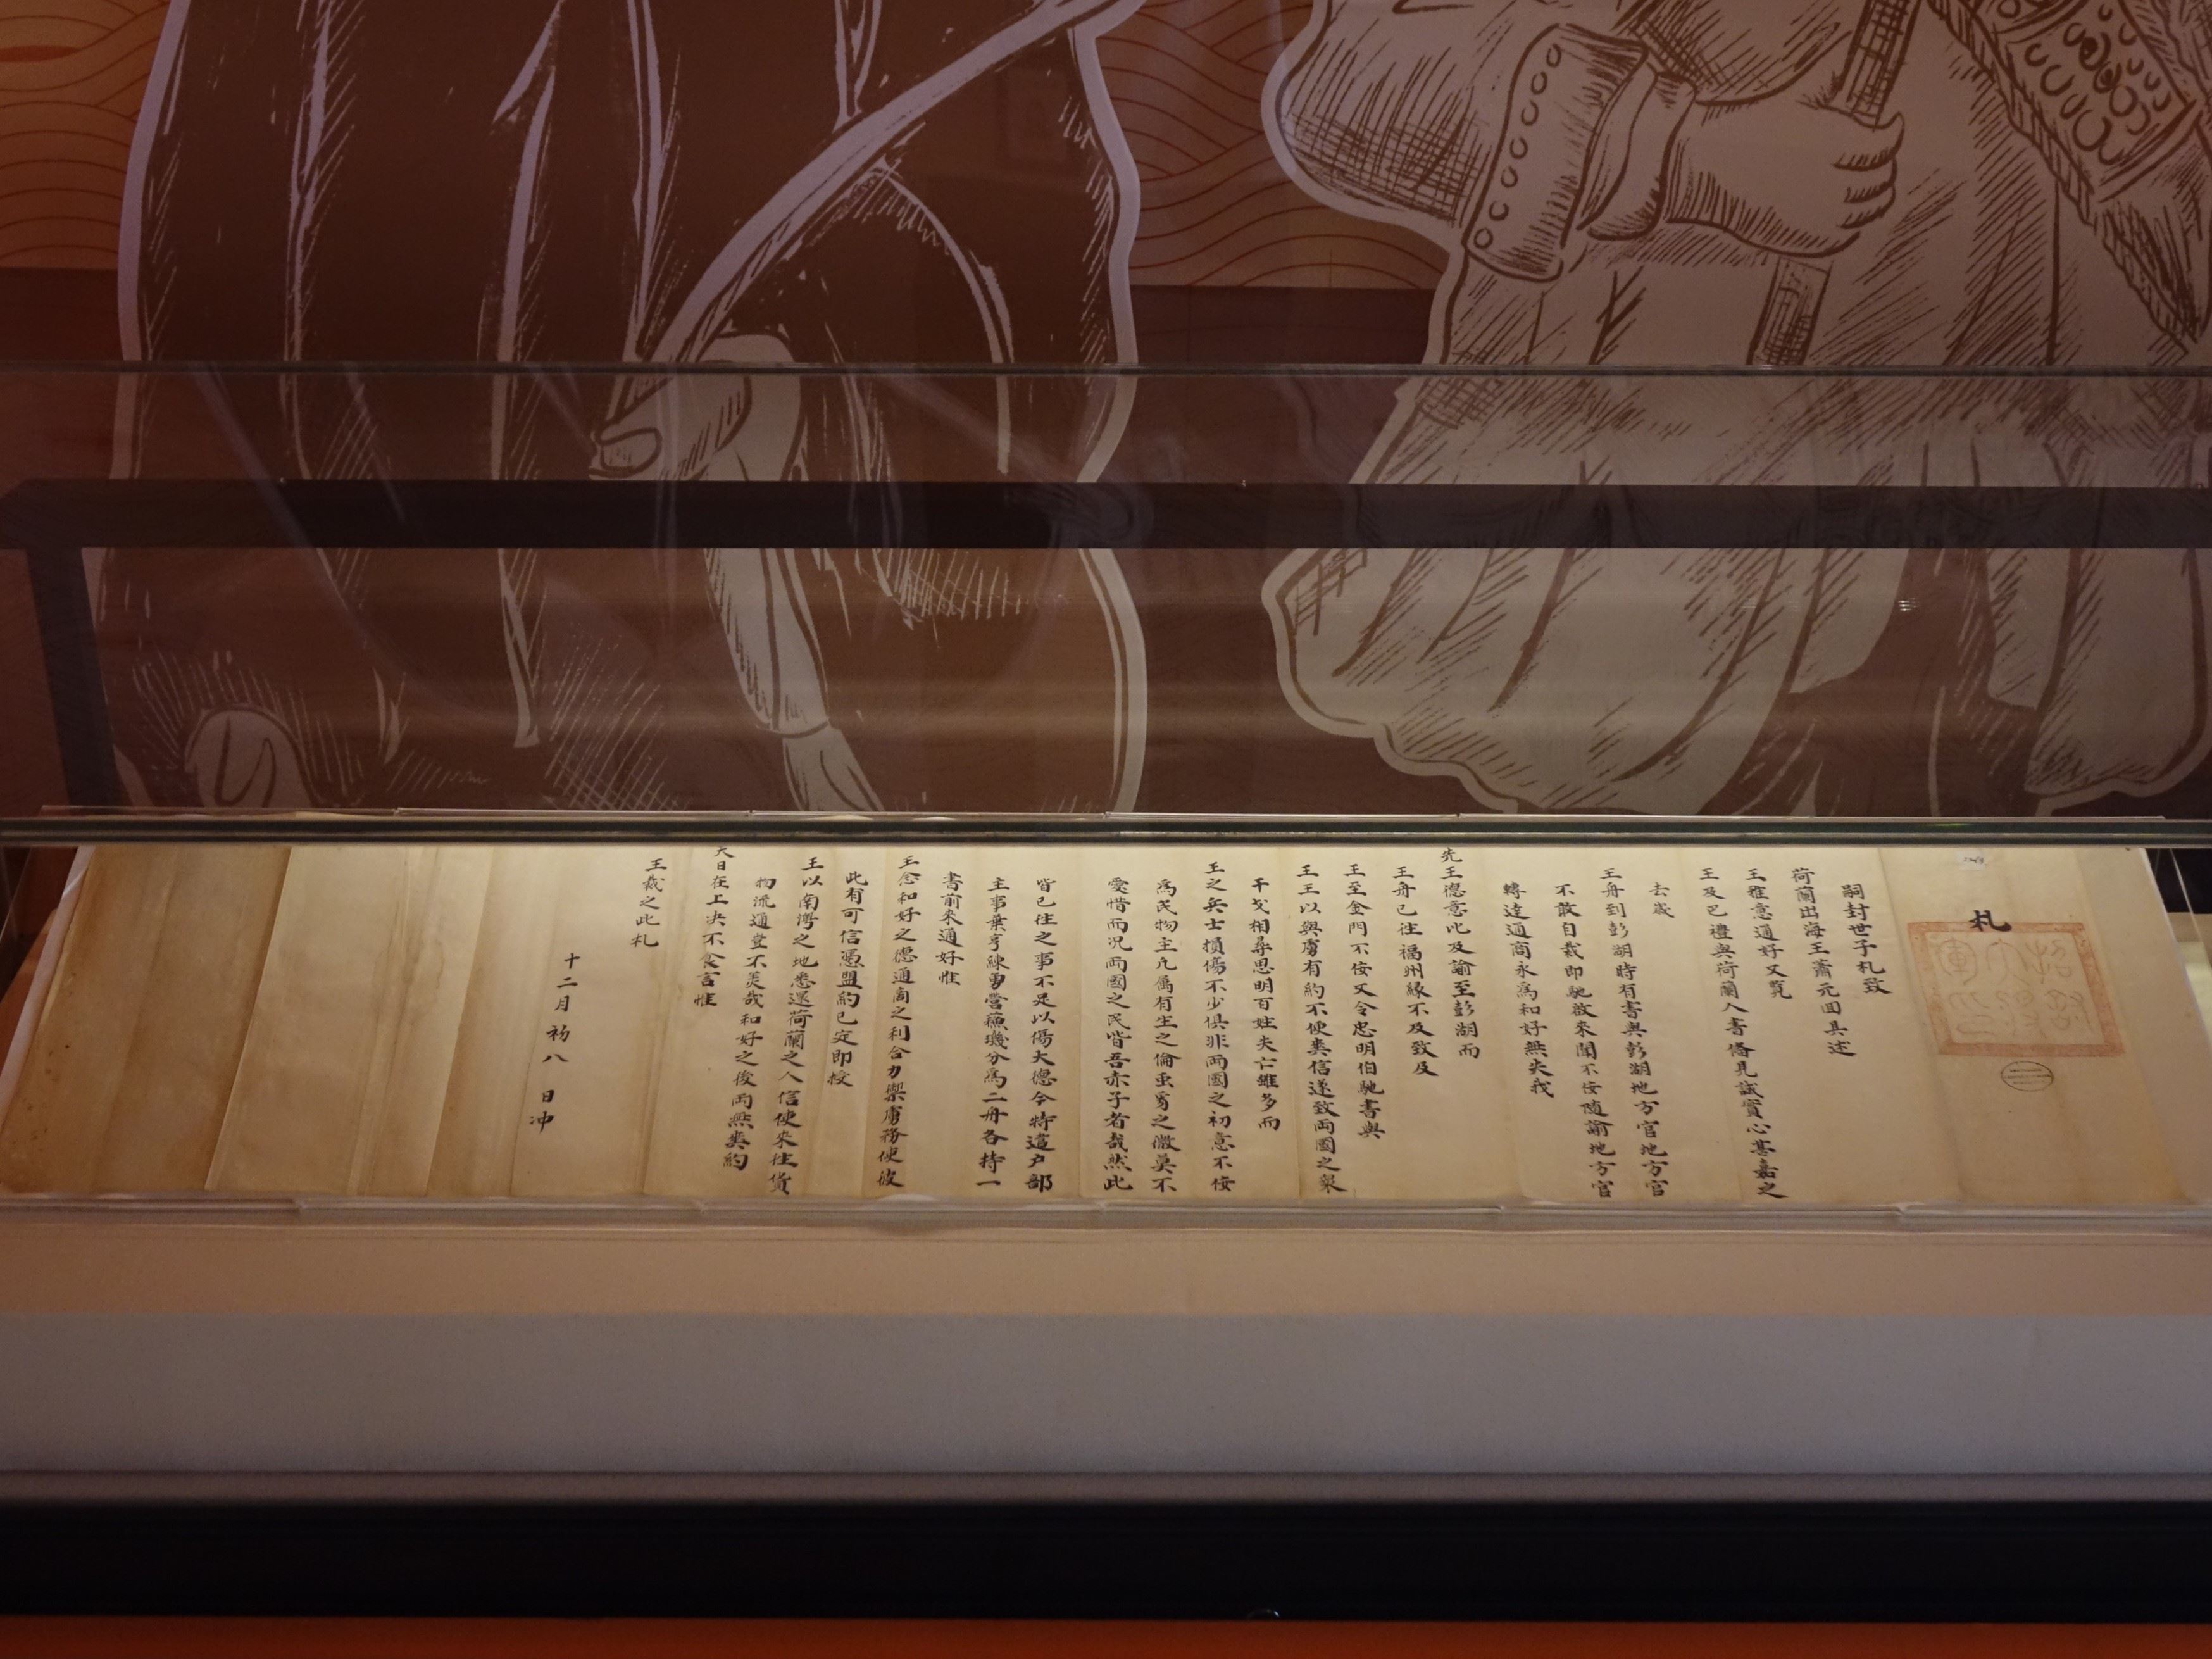 札
嗣封世子札致
荷蘭出海王蕭元回具述
王雅意通好又覽
王及巴禮與荷蘭人書備見誠實心甚嘉之
去歲
王舟到彭湖時有書與彭湖地方官地方官
不敢自裁即馳啟來聞不佞隨諭地方官
轉達通商永為和好無失我
先王德意比及諭至彭湖而
王舟已往福州緣不及致及
王至金門不佞又令忠明伯馳書與
王王以與虜有約不便爽信遂致兩國之眾
干戈相尋思明百姓失亡雖多而
王之兵士損傷不少俱非兩國之初意不佞
為民物主凡屬有生之倫虫豸之微莫不
愛惜而況兩國之民皆吾赤子者哉然此
皆已往之事不足以傷大德今特遣戶部
主事葉亨練勇營蘓璣分為二舟各持一
書前來通好惟
王念和好之德通商之利合力禦虜務使彼
此有可信憑盟約已定即授
王以南灣之地悉還荷蘭之人信使來往貨
物流通豈不美哉和好之後兩無爽約
天日在上決不食言惟
王裁之此札
十二月初八日冲